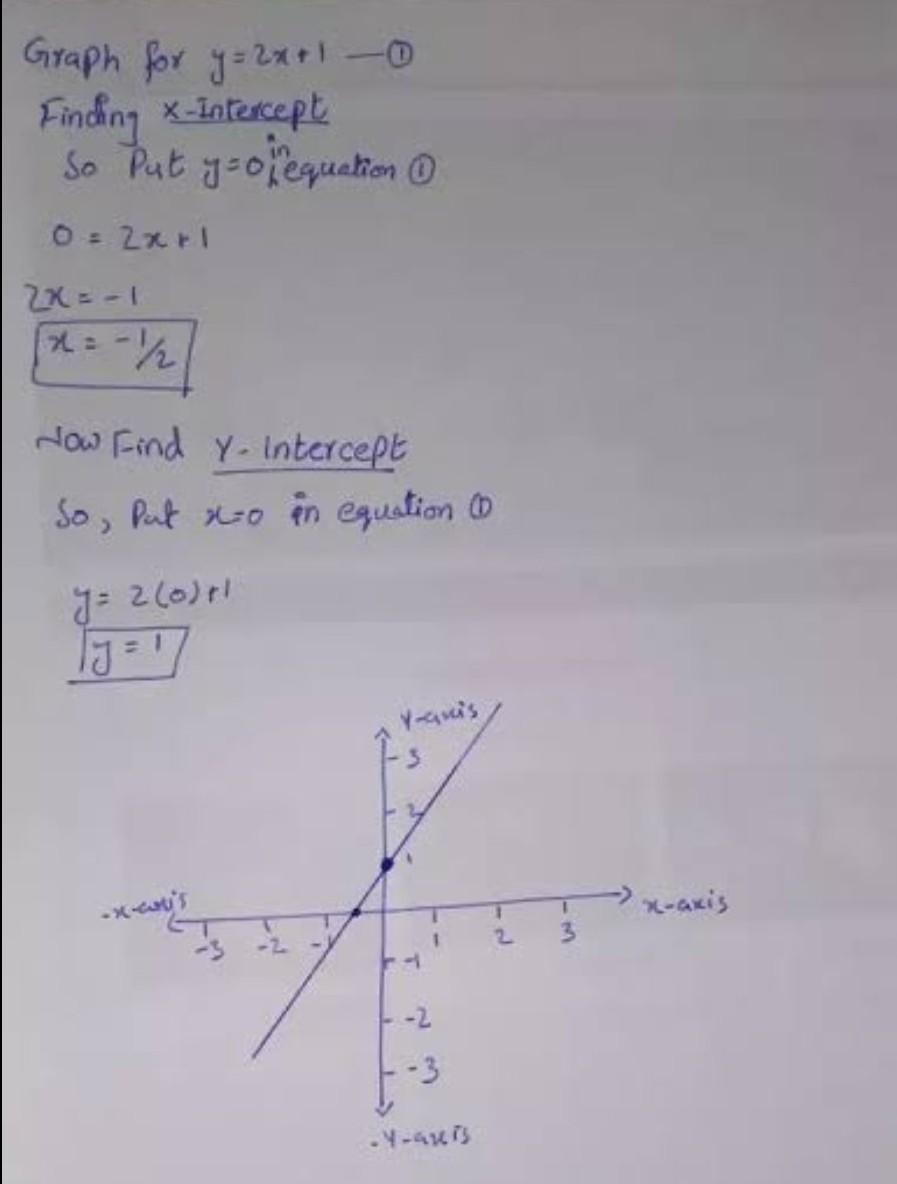 Graph for y=2x+1 —①
Finding x-Intercept
So Put y=0 in equation ①
0 = 2x+1
2x = -1
x = -1/2
Now Find Y-Intercept
So, Put x=0 in equation ①
y= 2(0)+1
y=1
Y-axis
3
2
1
-x-axis
x-axis
-3 -2 -1 1 2 3
-1
-2
-3
-Y-axis